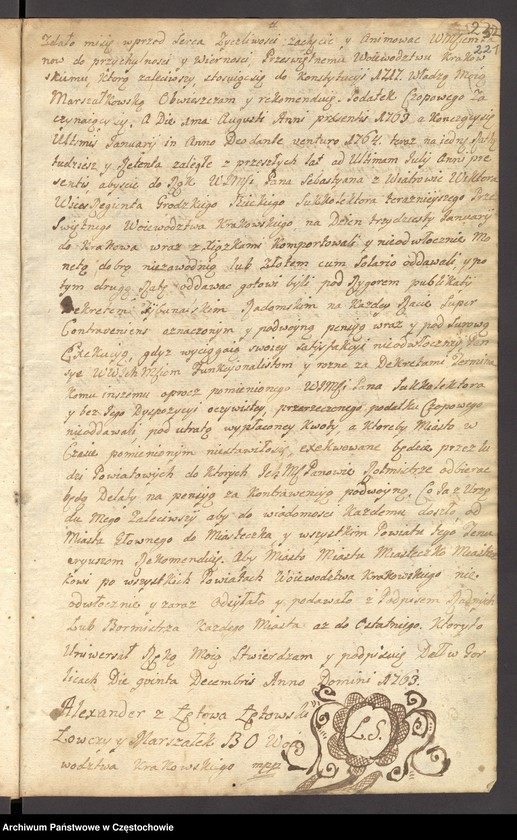 221
Zdało mi się wprzod serca Życzliwości zachęcić y Animować WMPanow
now do przychylności y wierności, Prześwietnemu Woiewodztwu Krakow
skiemu Ktorą zaleciwszy stosuiąc się do Konstytucyi 1717. Władzą Moią
Marszałkowską Obwieszczam y rekomenduię. Podatek Czopowego Za
czynaiący się, A Die 1ma Augusti Anni præsentis 1763 a Konczący się
Ultimis January in Anno Deo dante venturo 1764. teraz na iedną Ratę
tudziesz y Retenta zaległe z przeszłych lat od Ultimam July Anni præ
sentis, abyście do Rąk WJMCi Pana Sebastyana z Wiatrowic Wiktora
Vices Regenta Grodzkiego Sukkolektora teraznieyszego Prze
Swiętnego Woiewodztwa Krakowskiego, na Dzień trzydziesty January
do Krakowa wraz z Xiązkami Komportowali, y nieodwłocznie Mo
netą dobrą niezawodnią lub Złotem cum Solario oddawali, y po
tym drugą Ratę oddawać gotowi byli pod Rygorem publikaty
Dekretem Trybunalskim Radomskim na Kazdey Racie Super
Contravenienes oznaczonym y podwoyną pensyą wraz y pod Surową
Exekucyą, gdyż wyciągaią swoiey satysfakcyi nieodwłoczney Pen
sye WWJchMSciom Funkcyonalistom y rozne za Dekretami Termina
Komu inszemu oprocz pomienionego WJMSci Pana Sukkolektora
y bez Jego Dyspozycyi oczywistey, przerzeczonego podatku Czopowego
nieoddawali, pod utratą wypłaconey Kwoty, a Ktoreby Miasto w
Czasie pomienionym niestawiło się, exekwowane będzie przez lu
dzi Powiatowych do Ktorych Ich Mść Panowie Rotmistrze odbierać
będą Delaty na pensyą za Kontrawencyą podwoyną, Co Ja z Urzę
du Mego Zaleciwszy aby do wiadomości Każdemu doszło od
Miasta Głownego do Miasteczka y wszystkim Powiatu tego Jenu
Rekomenduię. Aby Miasto Miastu Miasteczko Miastecz
kowi po wszystkich Powiatach Woiewodztwa Krakowskiego nie
odwłocznie y zaraz Odsyłało y podawało z Podpisem Radnych
Lub Bormistrza Kazdego Miasta aż do Ostatniego, Ktory to
Uniwersał Ręką Moią Stwierdzam y podpisuię Datt w Gor
licach Die quinta Decembris Anno Domini 1763.
Alexander z Łętowa Łętowski
Łowczy y Marszałek S O Woie
wodztwa Krakowskiego mpp
L.S.
Archiwum Państwowe w Częstochowie